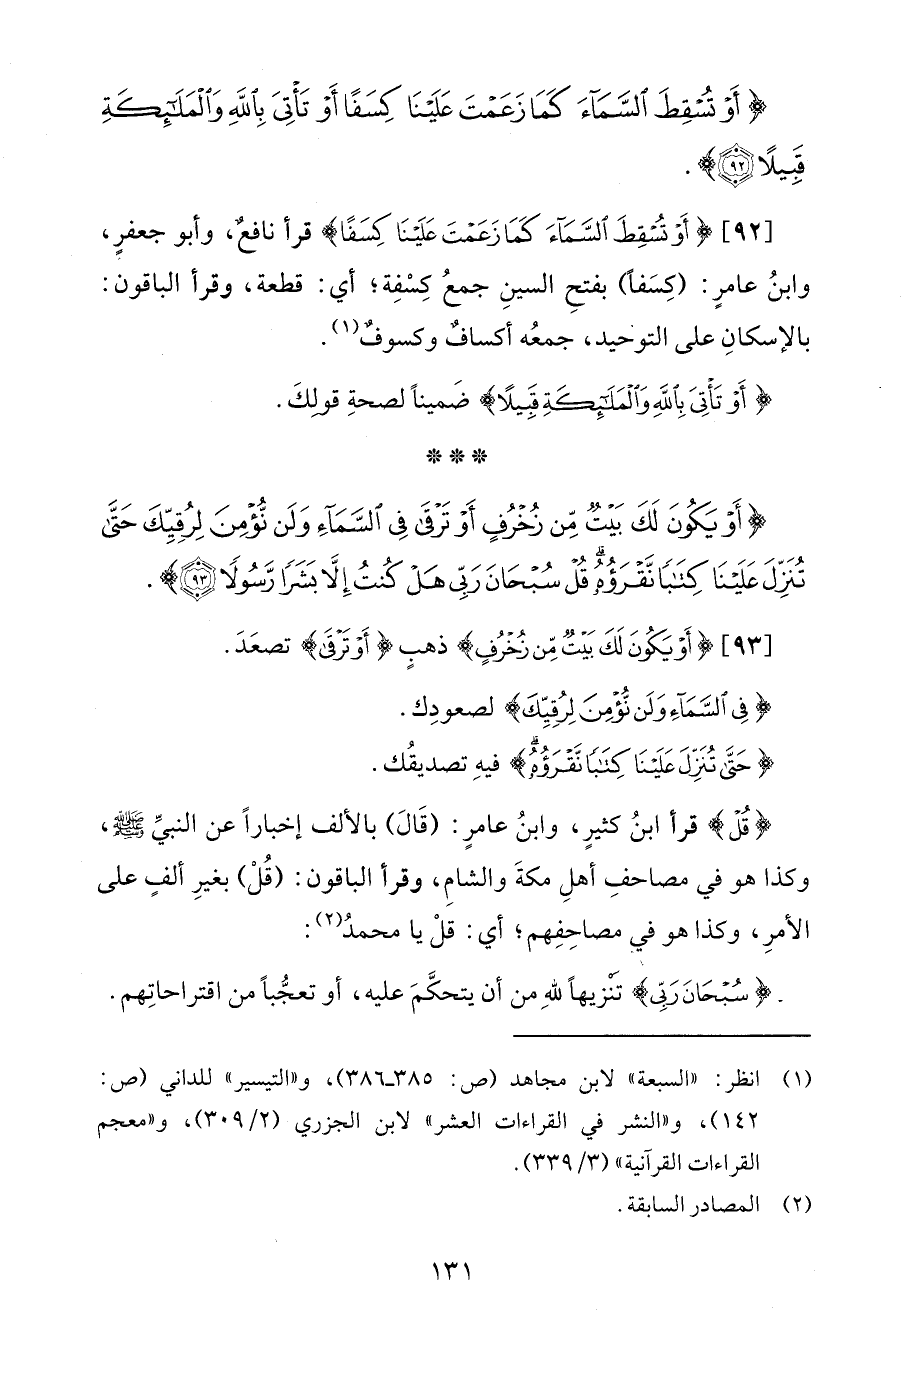 ﴿ أَوْ تُسْقِطَ ٱلسَّمَآءَ كَمَا زَعَمْتَ عَلَيْنَا كِسَفًا أَوْ تَأْتِىَ بِٱللَّهِ وَٱلْمَلَٰٓئِكَةِ
قَبِيلًا ﴿٩٢﴾ ﴾ .
[٩٢] ﴿ أَوْ تُسْقِطَ ٱلسَّمَآءَ كَمَا زَعَمْتَ عَلَيْنَا كِسَفًا ﴾ قرأ نافعٌ، وأبو جعفرٍ،
وابنُ عامرٍ: (كِسَفاً) بفتحِ السينِ جمعُ كِسْفِة؛ أي: قطعة، وقرأ الباقون:
بالإسكانِ على التوحيد، جمعُه أكسافٌ وكسوفٌ(١).
﴿ أَوْ تَأْتِىَ بِٱللَّهِ وَٱلْمَلَٰٓئِكَةِ قَبِيلًا ﴾ ضَميناً لصحةِ قولِكَ.
* * *
﴿ أَوْ يَكُونَ لَكَ بَيْتٌ مِّن زُخْرُفٍ أَوْ تَرْقَىٰ فِى ٱلسَّمَآءِ وَلَن نُّؤْمِنَ لِرُقِيِّكَ حَتَّىٰ
تُنَزِّلَ عَلَيْنَا كِتَٰبًا نَّقْرَؤُهُۥۗ قُلْ سُبْحَانَ رَبِّى هَلْ كُنتُ إِلَّا بَشَرًا رَّسُولًا ﴿٩٣﴾ ﴾ .
[٩٣] ﴿ أَوْ يَكُونَ لَكَ بَيْتٌ مِّن زُخْرُفٍ ﴾ ذهبٍ ﴿ أَوْ تَرْقَىٰ ﴾ تصعَدَ.
﴿ فِى ٱلسَّمَآءِ وَلَن نُّؤْمِنَ لِرُقِيِّكَ ﴾ لصعودِك.
﴿ حَتَّىٰ تُنَزِّلَ عَلَيْنَا كِتَٰبًا نَّقْرَؤُهُۥۗ ﴾ فيهِ تصديقُك.
﴿ قُلْ ﴾ قرأ ابنُ كثيرٍ، وابنُ عامرٍ: (قَالَ) بالألف إخباراً عن النبيِّ ﷺ،
وكذا هو في مصاحفِ أهلِ مكةَ والشامِ، وقرأ الباقون: (قُلْ) بغيرِ ألفٍ على
الأمرِ، وكذا هو في مصاحِفِهم؛ أي: قلْ يا محمدُ(٢):
﴿ سُبْحَانَ رَبِّى ﴾ تنْزيهاً للهِ من أن يتحكَّمَ عليه، أو تعجُّباً من اقتراحاتِهم.
(١) انظر: «السبعة» لابن مجاهد (ص: ٣٨٥ـ٣٨٦)، و«التيسير» للداني (ص:
١٤٢)، و«النشر في القراءات العشر» لابن الجزري (٢/ ٣٠٩)، و«معجم
القراءات القرآنية» (٣/ ٣٣٩).
(٢) المصادر السابقة.
١٣١